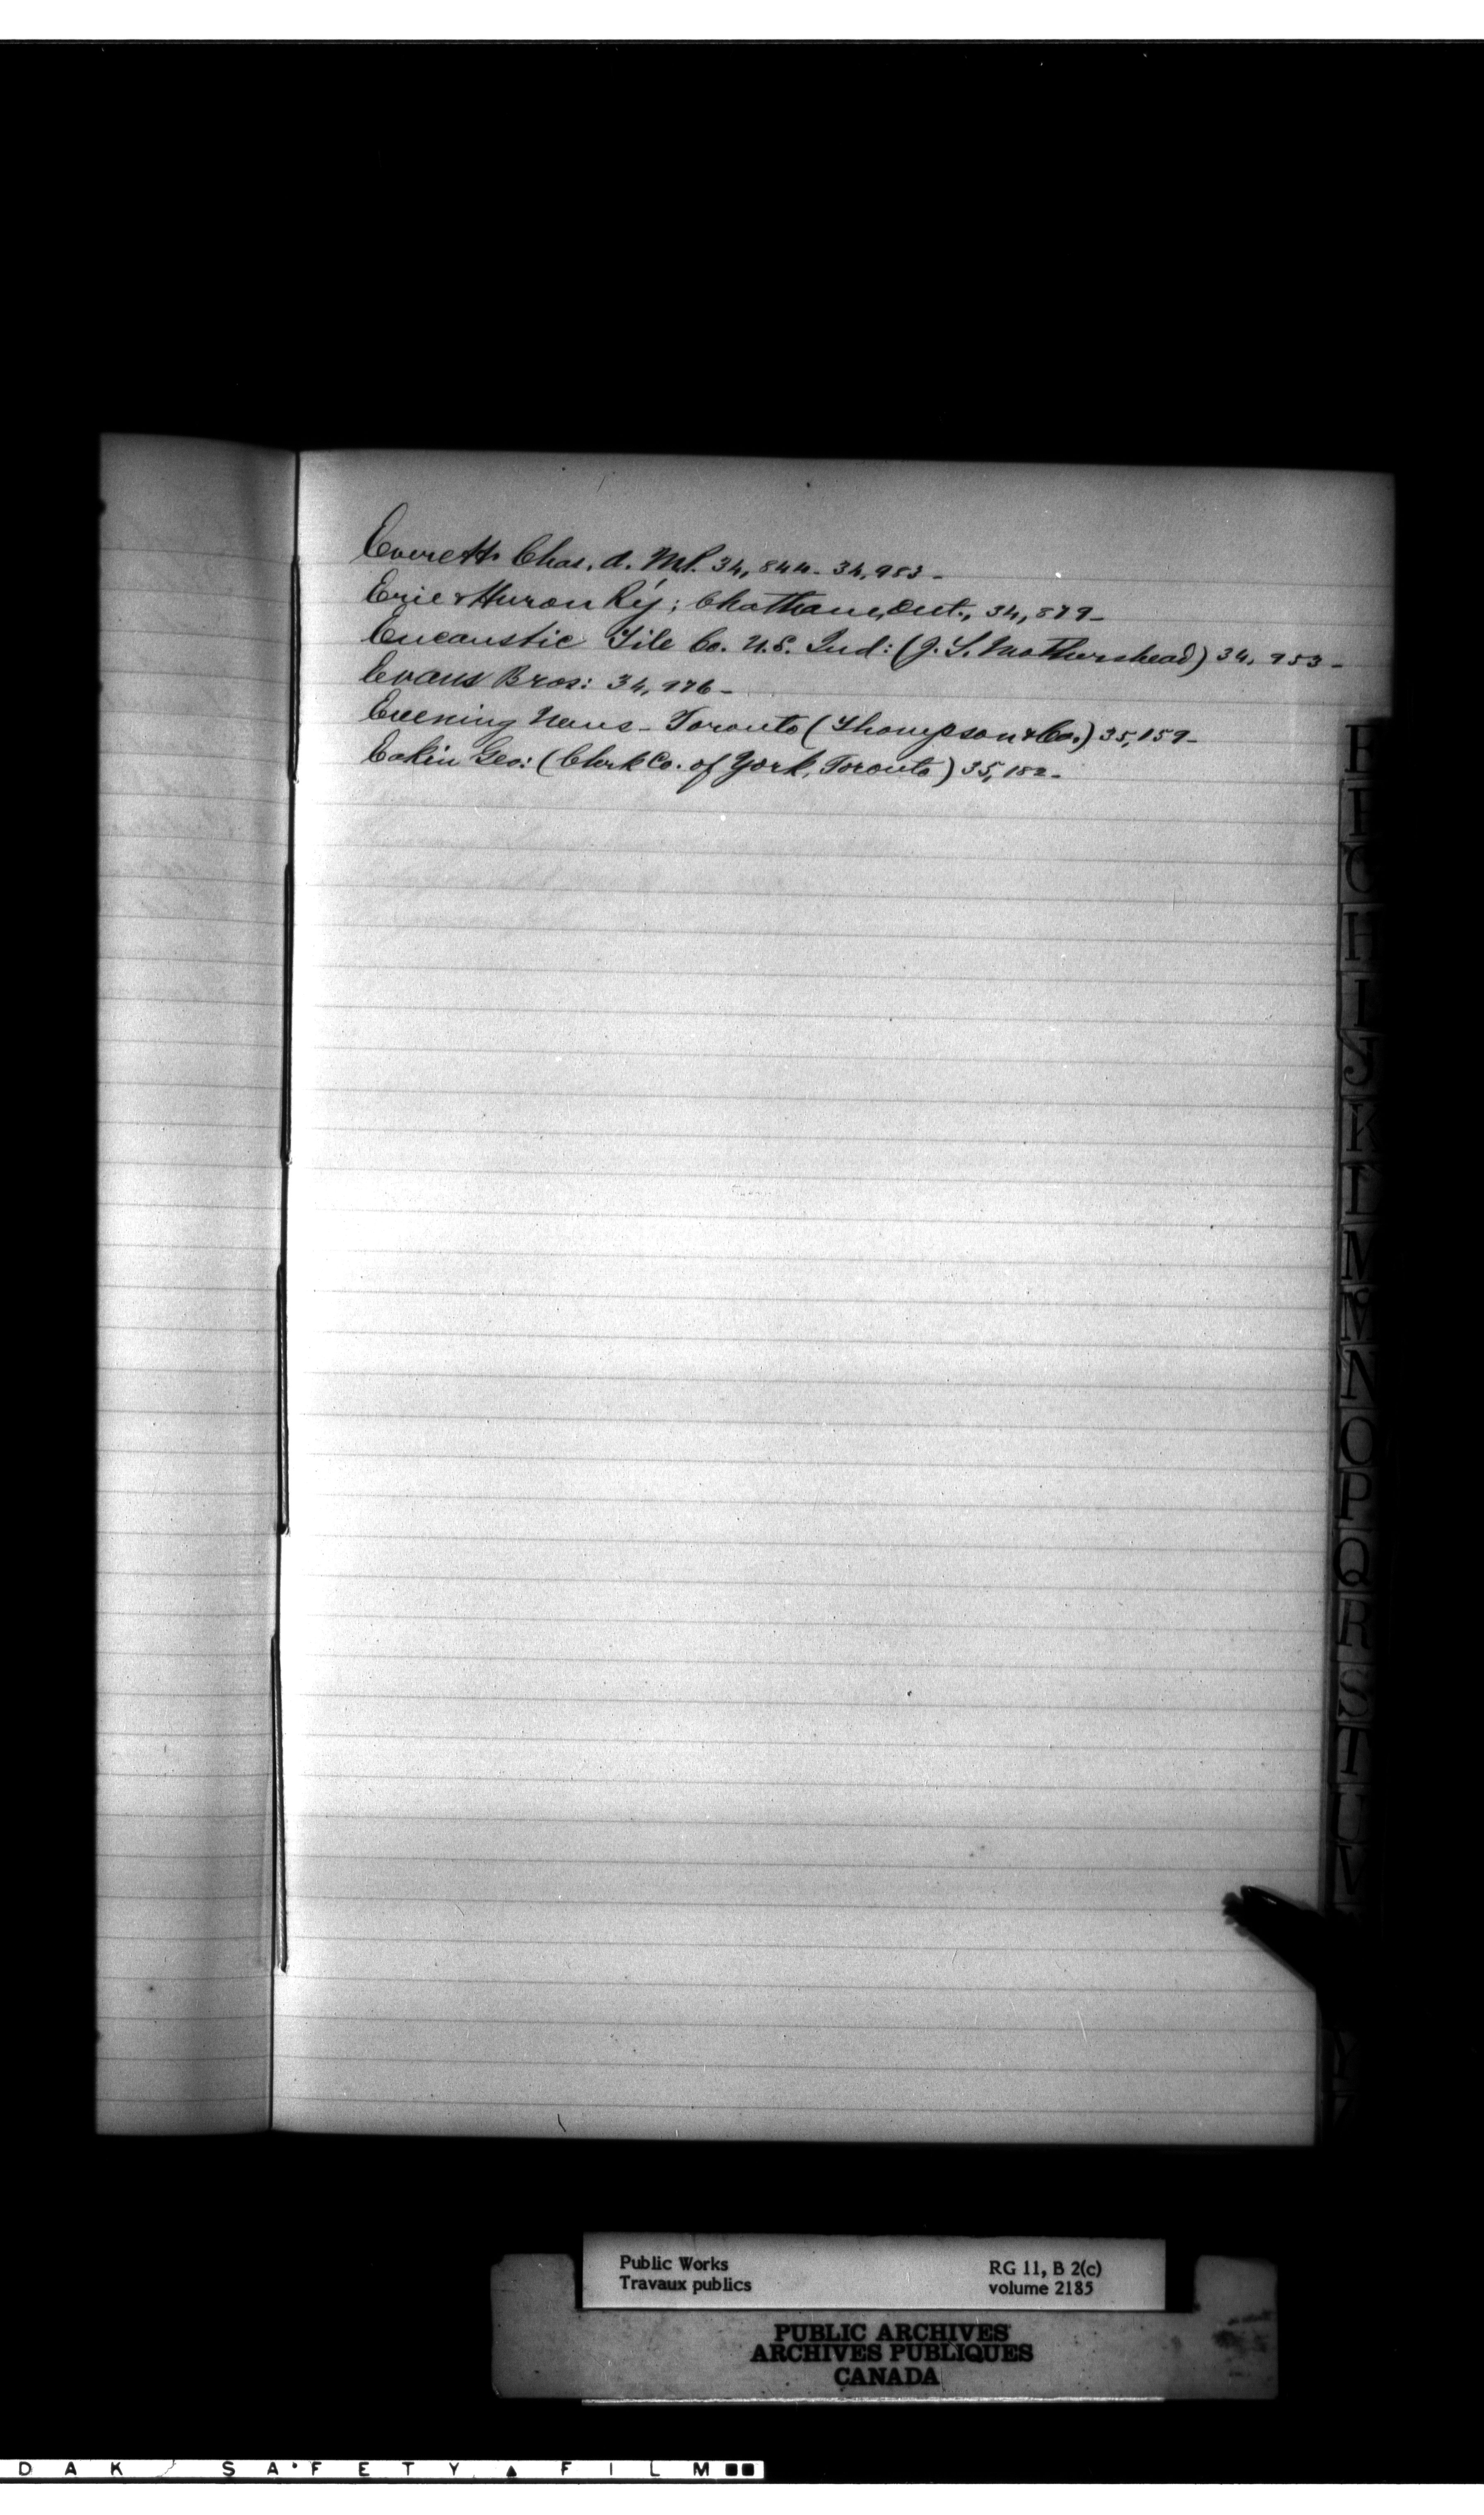 Everett Chas. A. M.P. 34,844 - 34,983 -
Erie & Huron Ry; Chatham, Ont., 34,879 -
Encaustic Tile Co. U.S. Ind: (J. L. Mothershead) 34,953 -
Evans Bros: 34,976 -
Evening News - Toronto (Thompson & Co.) 35,159 -
Eakin Geo: (Clerk Co. of York, Toronto) 35,182 -
E
F
G
H
I
J
K
L
M
Mc
N
O
P
Q
R
S
T
U
V
Public Works RG 11, B 2(c)
Travaux publics volume 2185
PUBLIC ARCHIVES
ARCHIVES PUBLIQUES
CANADA
DAK SAFETY FILM